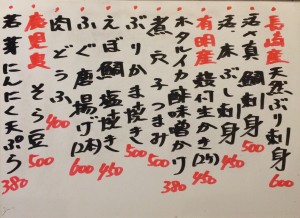 長崎産 天然ぶり刺身 600
活〆真鯛刺身 500
活〆本ぶし刺身 450
有明産 殻付生かき(2ケ) 450
ホタルイカ酢味噌かけ 380
煮穴子つまみ 500
ぶりかま焼き 500
えぼ鯛塩焼き 450
ふぐ唐揚げ(2本) 600
肉どうふ 400
鹿児島 そら豆 500
若芽にんにく天ぷら 380